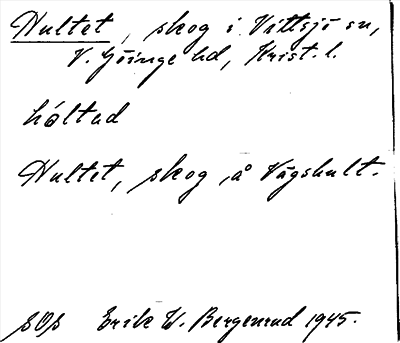 Hultet, skog i Vittsjö sn,
V. Göinge hd, Krist. l.
hóltad
Hultet, skog, å Vägshult.
SOS Erik W. Bergenrud 1945.